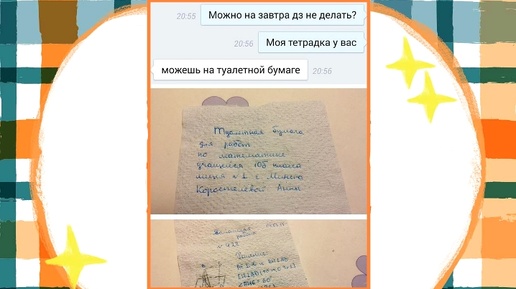 Можно на завтра дз не делать?
20:55
Моя тетрадка у вас
20:56
можешь на туалетной бумаге
20:56
Туалетная бумага
для работ
по математике
учащейся 10Б класса
лицея №1 г. Минска
Коростелевой Анны
Домашняя
работа